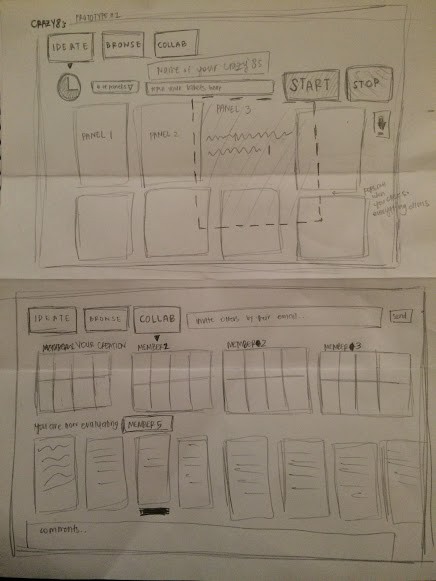 CRAZY 8s PROTOTYPE #2
IDEATE BROWSE COLLAB
NAME OF YOUR CRAZY 8s
# OF PANELS START STOP
PANEL 1 PANEL 2 PANEL 3
IDEATE BROWSE COLLAB invite others by their email... send
YOUR CREATION MEMBER 2 MEMBER #2 MEMBER #3
you are now evaluating MEMBER 5
comments...